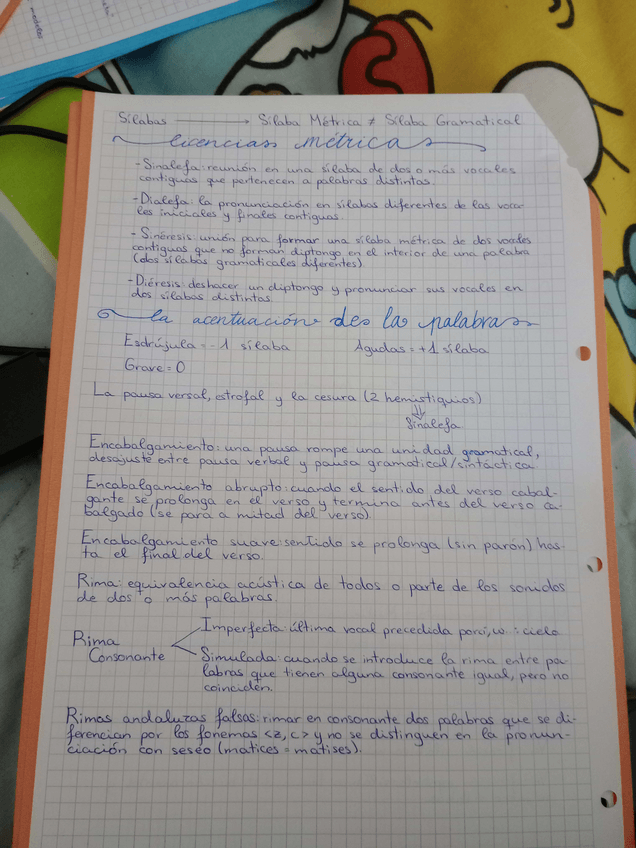 Sílabas → Sílaba Métrica ≠ Sílaba Gramatical
licencias métricas
- Sinalefa: reunión en una sílaba de dos o más vocales
contiguas que pertenecen a palabras distintas.
- Dialefa: la pronunciación en sílabas diferentes de las voca-
les iniciales y finales contiguas.
- Sinéresis: unión para formar una sílaba métrica de dos vocales
contiguas que no forman diptongo en el interior de una palabra
(dos sílabas gramaticales diferentes).
- Diéresis: deshacer un diptongo y pronunciar sus vocales en
dos sílabas distintas.
la acentuación des la palabras
Esdrújula = -1 sílaba Agudas = +1 sílaba
Grave = 0
La pausa versal, estrofal y la cesura (2 hemistiquios)
⇓
Sinalefa
Encabalgamiento: una pausa rompe una unidad gramatical,
desajuste entre pausa verbal y pausa gramatical/sintáctica
Encabalgamiento abrupto: cuando el sentido del verso cabal-
gante se prolonga en el verso y termina antes del verso ca-
balgado (se para a mitad del verso).
Encabalgamiento suave: sentido se prolonga (sin parón) has-
ta el final del verso.
Rima: equivalencia acústica de todos o parte de los sonidos
de dos o más palabras.
Imperfecta: última vocal precedida por i, u : cielo
Rima
Consonante
Simulada: cuando se introduce la rima entre pa-
labras que tienen alguna consonante igual, pero no
coinciden.
Rimas andaluzas falsas: rimar en consonante dos palabras que se di-
ferencian por los fonemas <z, c> y no se distinguen en la pronun-
ciación con seseo (matices = matises).